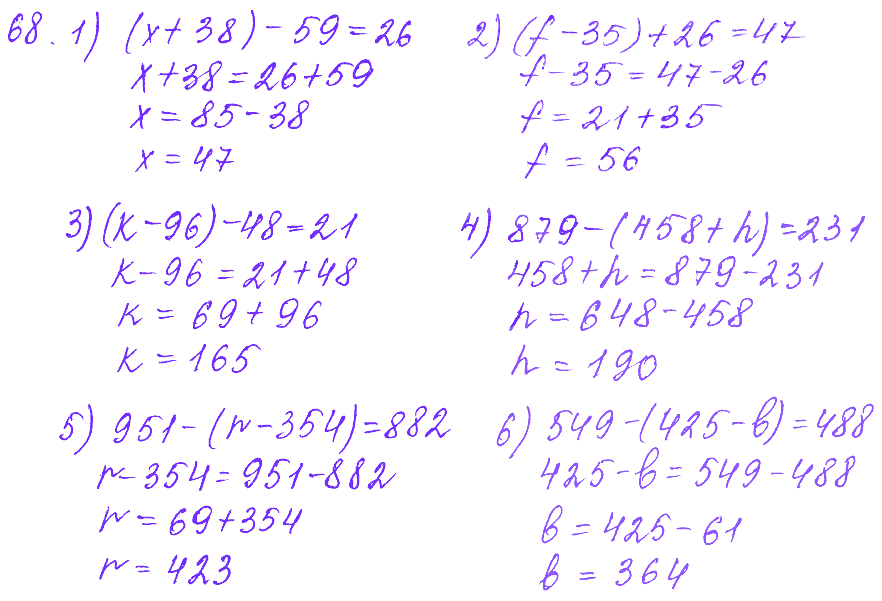 68. 1) (x + 38) - 59 = 26
x + 38 = 26 + 59
x = 85 - 38
x = 47
2) (f - 35) + 26 = 47
f - 35 = 47 - 26
f = 21 + 35
f = 56
3) (k - 96) - 48 = 21
k - 96 = 21 + 48
k = 69 + 96
k = 165
4) 879 - (458 + h) = 231
458 + h = 879 - 231
h = 648 - 458
h = 190
5) 951 - (r - 354) = 882
r - 354 = 951 - 882
r = 69 + 354
r = 423
6) 549 - (425 - b) = 488
425 - b = 549 - 488
b = 425 - 61
b = 364